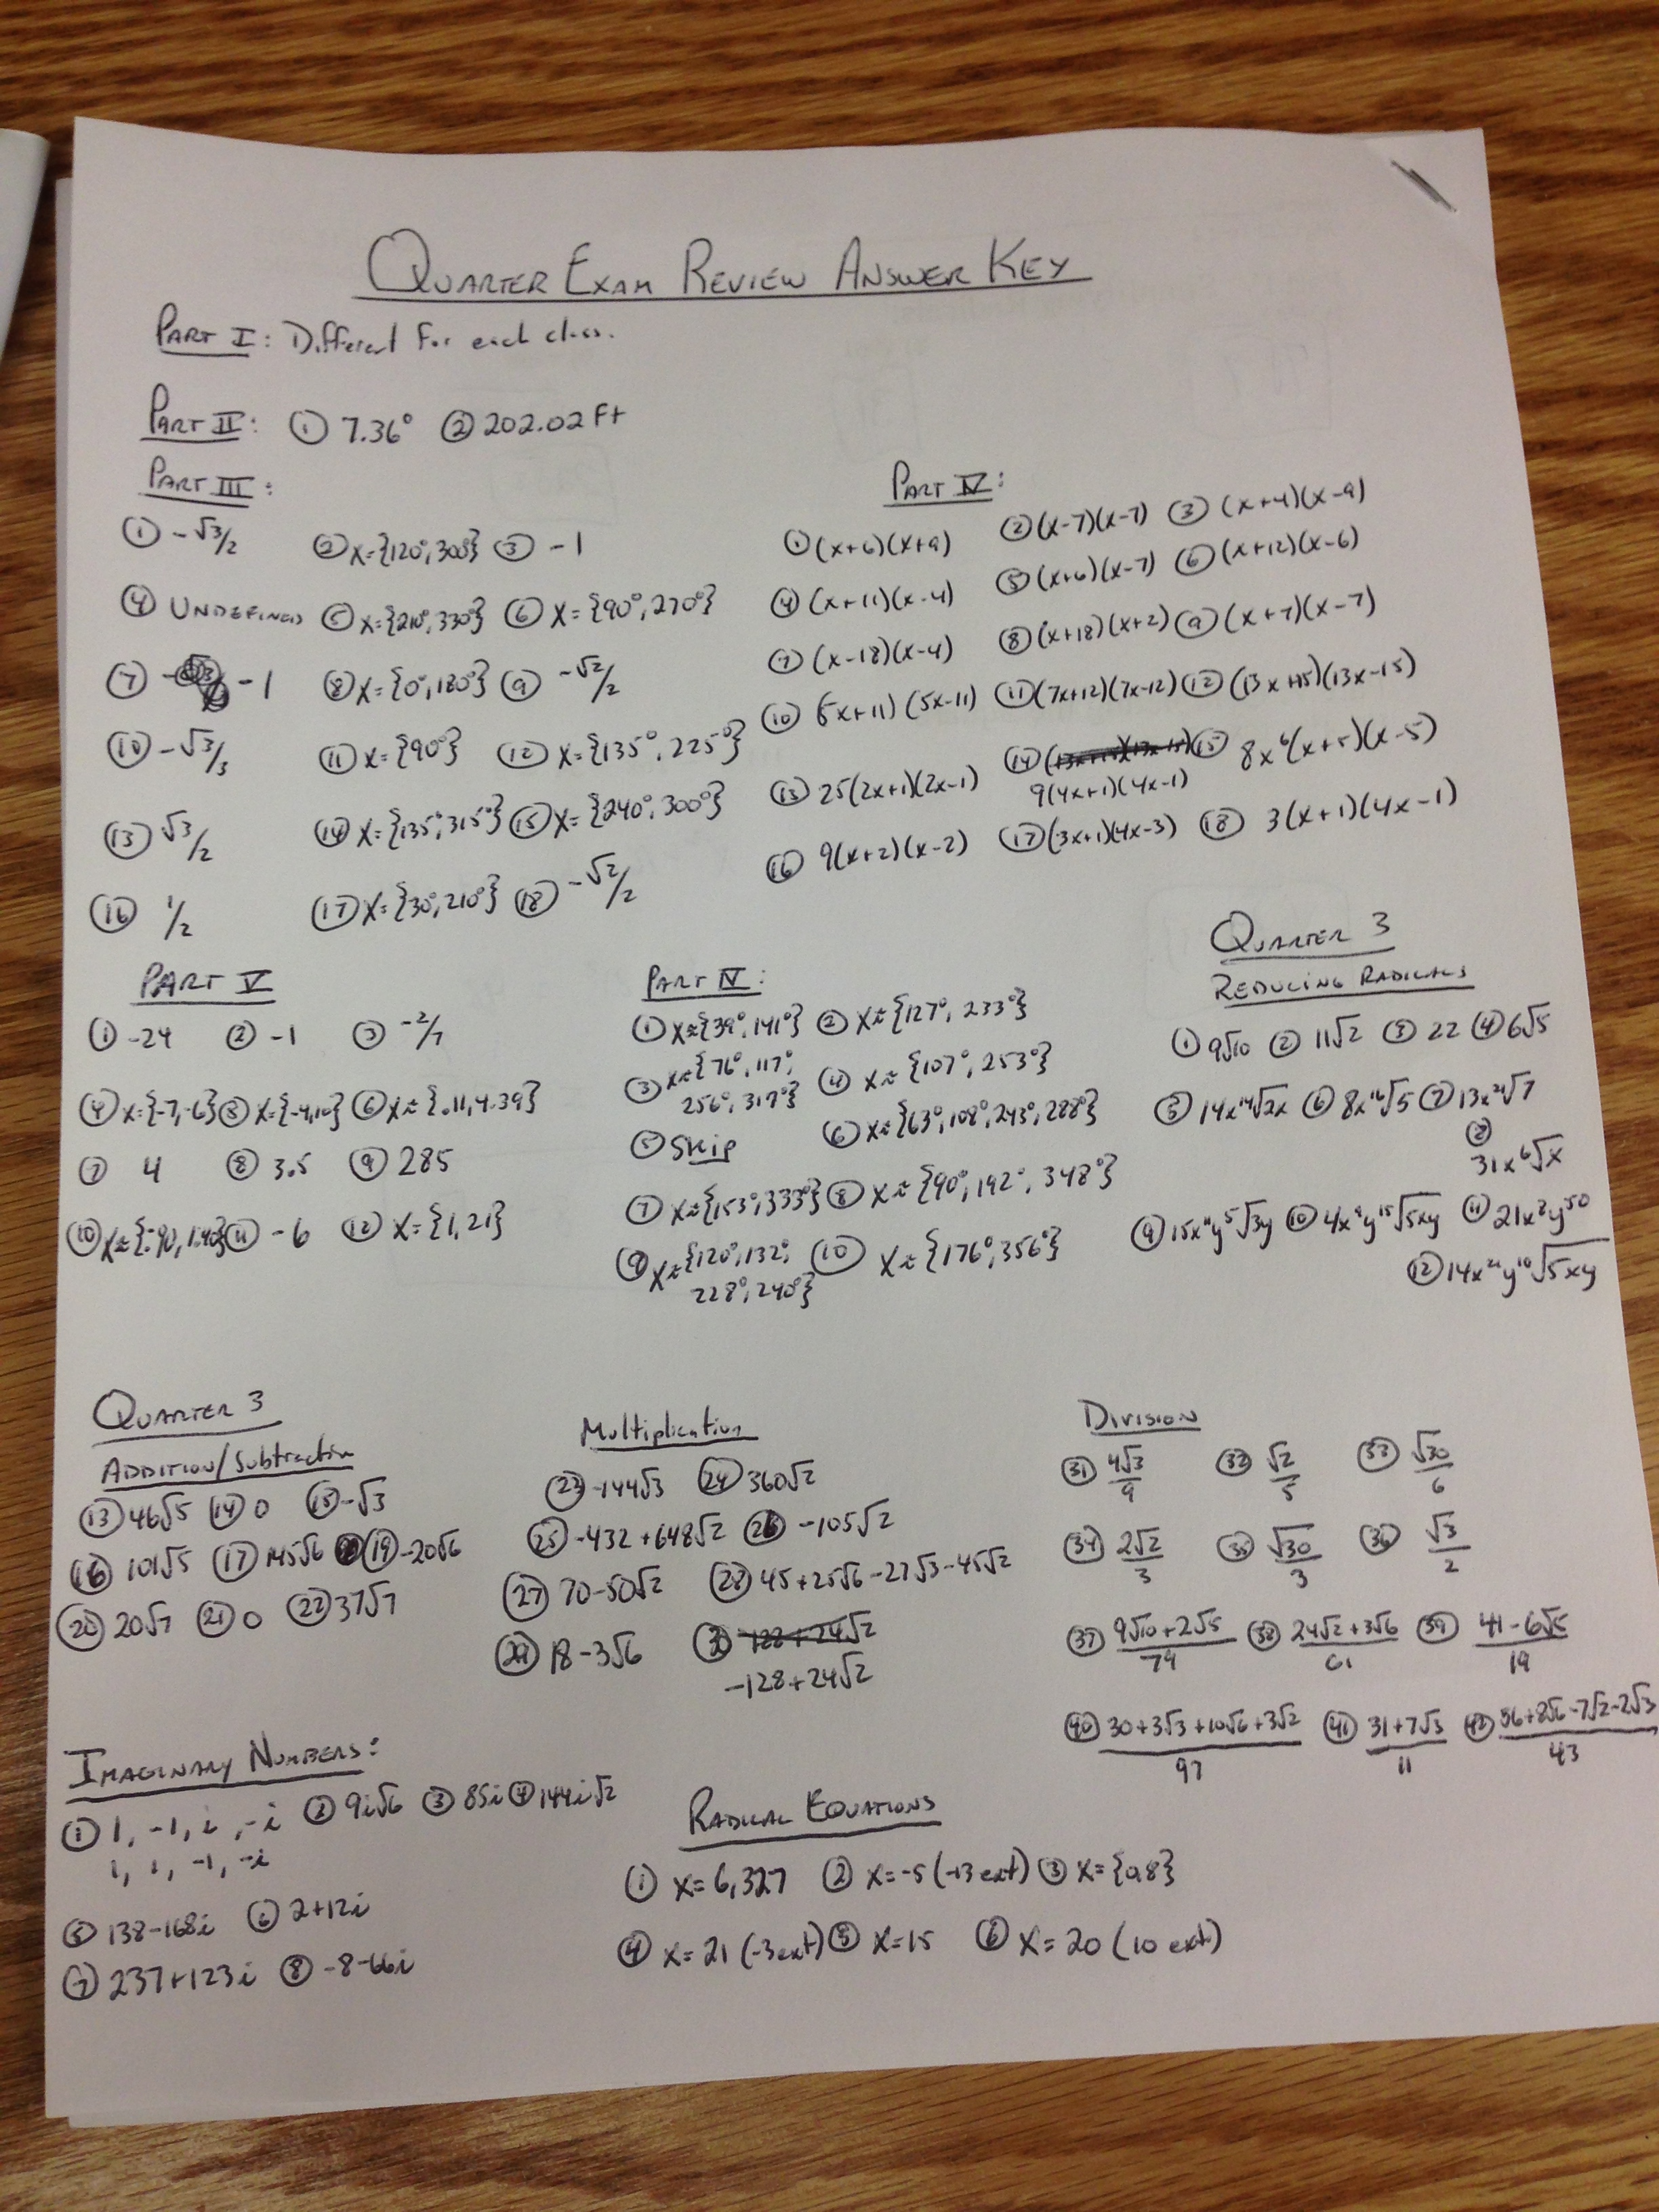 QUARTER EXAM REVIEW ANSWER KEY
PART I: Different for each class.
PART II: ① 7.36° ② 202.02 Ft
PART III:
① -√3/2 ② x={120°,300°} ③ -1
④ UNDEFINED ⑤ x={210°,330°} ⑥ x={90°,270°}
⑦ -1 ⑧ x={0°,180°} ⑨ -√2/2
⑩ -√3/3 ⑪ x={90°} ⑫ x={135°,225°}
⑬ √3/2 ⑭ x={135°,315°} ⑮ x={240°,300°}
⑯ 1/2 ⑰ x={30°,210°} ⑱ -√2/2
PART IV:
① (x+6)(x+9) ② (x-7)(x-7) ③ (x+4)(x-9)
④ (x+11)(x-4) ⑤ (x+6)(x-7) ⑥ (x+12)(x-6)
⑦ (x-18)(x-4) ⑧ (x+18)(x+2) ⑨ (x+7)(x-7)
⑩ (5x+11)(5x-11) ⑪ (7x+12)(7x-12) ⑫ (13x+15)(13x-15)
⑬ 25(2x+1)(2x-1) ⑭ (13x+15)(13x-15) ⑮ 8x⁶(x+5)(x-5)
9(4x+1)(4x-1)
⑯ 9(x+2)(x-2) ⑰ (3x+1)(4x-3) ⑱ 3(x+1)(4x-1)
PART V
① -24 ② -1 ③ -2/7
④ x={-7,-6} ⑤ x={-4,10} ⑥ x≈{.11,4.39}
⑦ 4 ⑧ 3.5 ⑨ 285
⑩ x≈{-.90,1.40} ⑪ -6 ⑫ x={1,21}
PART IV:
① x≈{39°,141°} ② x≈{127°,233°}
③ x≈{76°,117°, ④ x≈{107°,253°}
256°,317°}
⑤ Skip ⑥ x≈{63°,108°,243°,288°}
⑦ x≈{153°,333°} ⑧ x≈{90°,192°,348°}
⑨ x≈{120°,132°, ⑩ x≈{176°,356°}
228°,240°}
QUARTER 3
REDUCING RADICALS
① 9√10 ② 11√2 ③ 22 ④ 6√5
⑤ 14x¹⁴√2x ⑥ 8x¹⁶√5 ⑦ 13x²⁴√7
⑧
31x⁶√x
⑨ 15x¹¹y⁵√3y ⑩ 4x⁹y¹⁵√5xy ⑪ 21x⁸y⁵⁰
⑫ 14x²¹y¹⁰√5xy
QUARTER 3
ADDITION/Subtraction
⑬ 46√5 ⑭ 0 ⑮ -√3
⑯ 101√5 ⑰ 145√6 ⑲ -20√6
⑳ 20√7 ㉑ 0 ㉒ 37√7
Multiplication
㉓ -144√3 ㉔ 360√2
㉕ -432+648√2 ㉖ -105√2
㉗ 70-50√2 ㉘ 45+25√6-27√3-45√2
㉙ 18-3√6 ㉚ -128+24√2
-128+24√2
DIVISION
㉛ 4√3/9 ㉜ √2/5 ㉝ √30/6
㉞ 2√2/3 ㉟ √30/3 ㊱ √3/2
㊲ 9√10+2√5/79 ㊳ 24√2+3√6/61 ㊴ 41-6√5/19
㊵ 30+3√3+10√6+3√2/97 ㊶ 31+7√3/11 ㊷ 56+8√6-7√2-2√3/43
IMAGINARY NUMBERS:
① 1, -1, i, -i ② 9i√6 ③ 85i ④ 144i√2
1, i, -1, -i
⑤ 138-168i ⑥ 2+12i
⑦ 237+123i ⑧ -8-66i
RADICAL EQUATIONS
① x=6,327 ② x=-5(-13 ext) ③ x={0,8}
④ x=21(-3 ext) ⑤ x=15 ⑥ x=20 (10 ext)